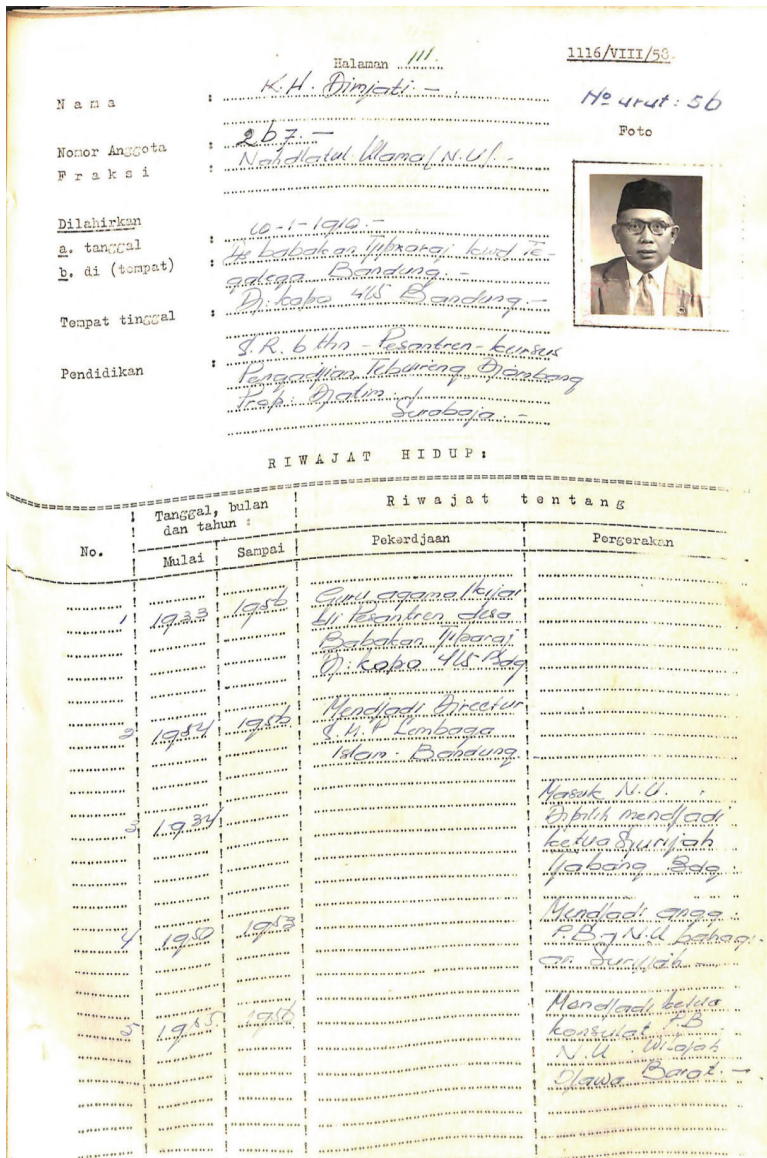 Halaman 111.
1116/VIII/58.
Nama : K.H. Dimjati. –
No urut : 56
Foto
Nomor Anggota : 267. –
Fraksi : Nahdlatul Ulama (N.U). –
Dilahirkan
a. tanggal : 10-1-1910. –
b. di (tempat) : Ds babakan Tjiparaj kwd Te-
galega Bandung. –
Tempat tinggal : Dj: kopo 415 Bandung. –
Pendidikan : S.R. 6 thn – Pesantren – kursus
Pengadjian Tebuireng Djombang
Prop: Djatim
Surabaja. –
RIWAJAT HIDUP:
No. ! Tanggal, bulan dan tahun : ! Riwajat tentang
Mulai ! Sampai ! Pekerdjaan ! Pergerakan
1 1933 1956 Guru agama/kijai
di Pesantren desa
Babakan Tjiparaj
Dj: kopo 415 Bdg
2 1954 1956 Mendjadi Directur
S.M.P Lembaga
Islam - Bandung.
3 1934 Masuk N.U.
Dipilih mendjadi
ketua Surijah
Tjabang Bdg.
4 1950 1953 Mendjadi angg:
P.B. N.U bahagi-
an Surijah
5 1955 1956 Mendjadi ketua
konsulat P.B
N.U Wilajah
Djawa Barat. –